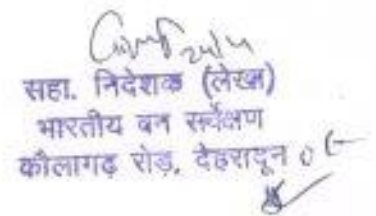 सहा. निदेशक (लेखा)
भारतीय वन सर्वेक्षण
कौलागढ़ रोड़, देहरादून